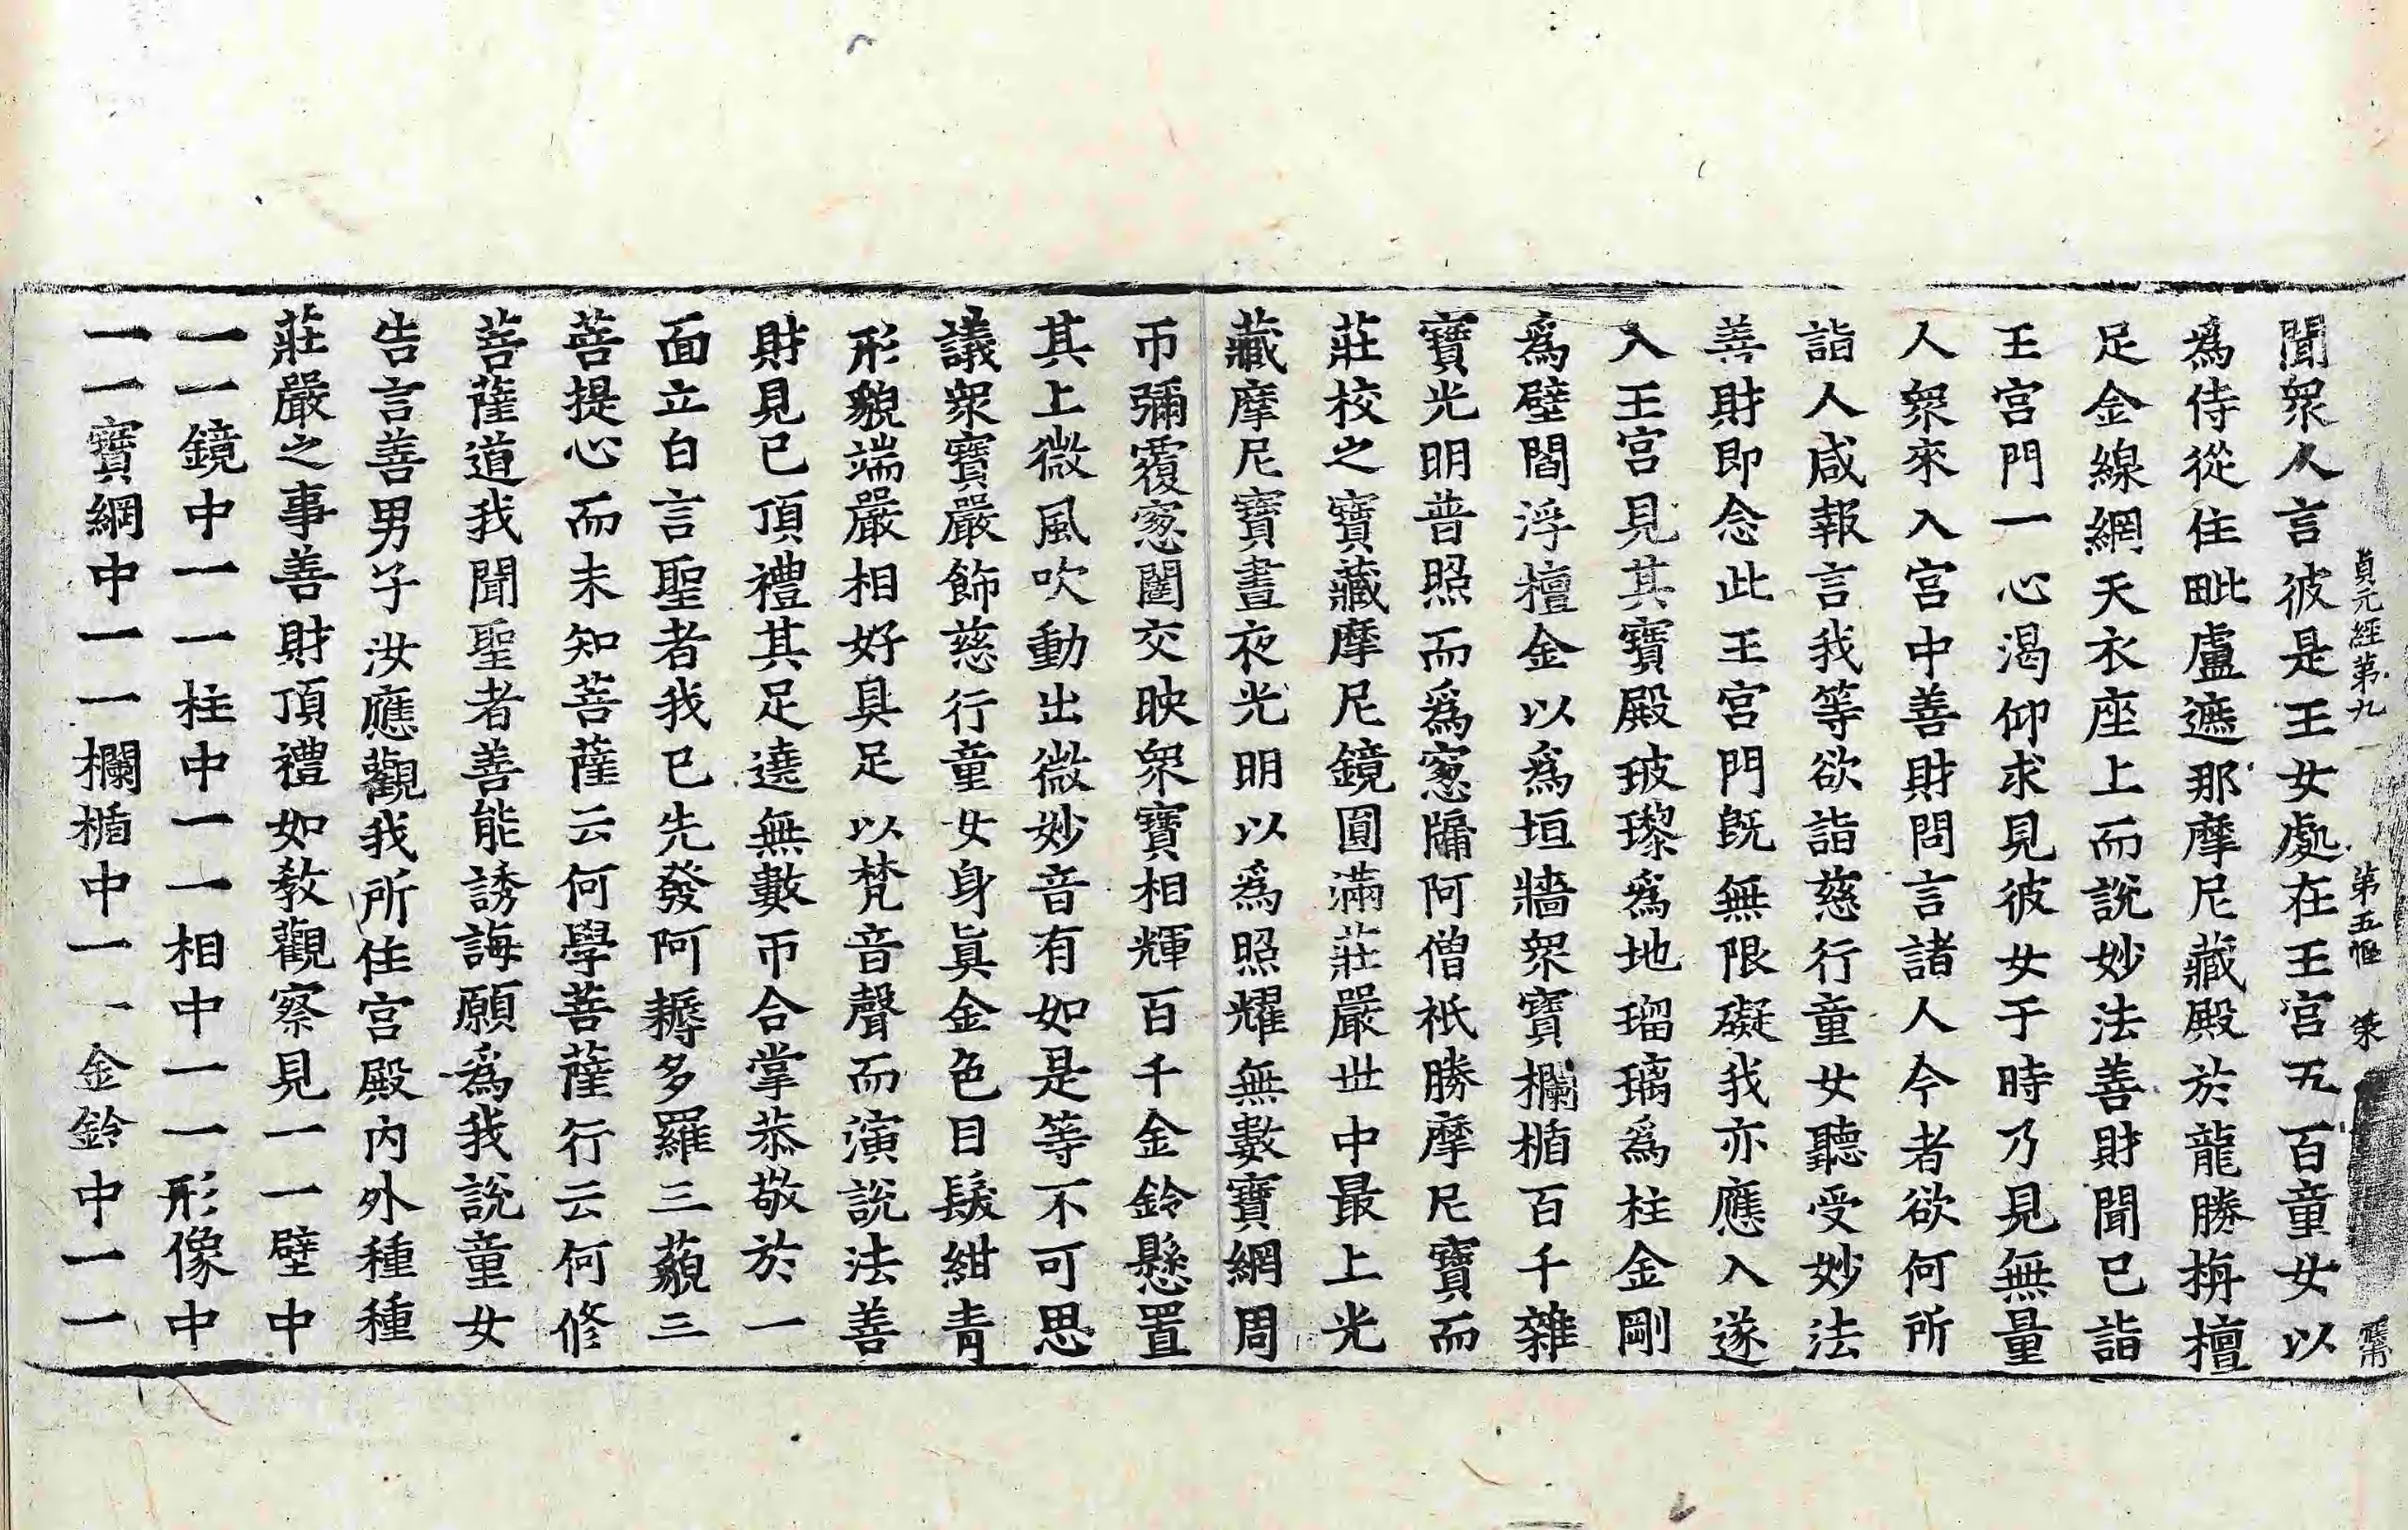 貞元經第九 第五幅 荣
聞衆人言彼是王女處在王宮五百童女以
爲侍從住毗盧遮那摩尼藏殿於龍勝栴檀
足金線網天衣座上而說妙法善財聞已詣
王宮門一心渴仰求見彼女于時乃見無量
人衆來入宮中善財問言諸人今者欲何所
詣人咸報言我等欲詣慈行童女聽受妙法
善財即念此王宮門旣無限礙我亦應入遂
入王宮見其寶殿玻瓈爲地瑠璃爲柱金剛
爲壁閻浮檀金以爲垣牆衆寶欄楯百千雜
寶光明普照而爲窻牖阿僧祇勝摩尼寶而
莊校之寶藏摩尼鏡圓滿莊嚴世中最上光
藏摩尼寶晝夜光明以爲照耀無數寶網周
帀彌覆窻闥交映衆寶相輝百千金鈴懸置
其上微風吹動出微妙音有如是等不可思
議衆寶嚴飾慈行童女身眞金色目髮紺青
形貌端嚴相好具足以梵音聲而演說法善
財見已頂禮其足遶無數帀合掌恭敬於一
面立白言聖者我已先發阿耨多羅三藐三
菩提心而未知菩薩云何學菩薩行云何修
菩薩道我聞聖者善能誘誨願爲我說童女
告言善男子汝應觀我所住宮殿內外種種
莊嚴之事善財頂禮如教觀察見一一壁中
一一鏡中一一柱中一一相中一一形像中
一一寶網中一一欄楯中一一金鈴中一一